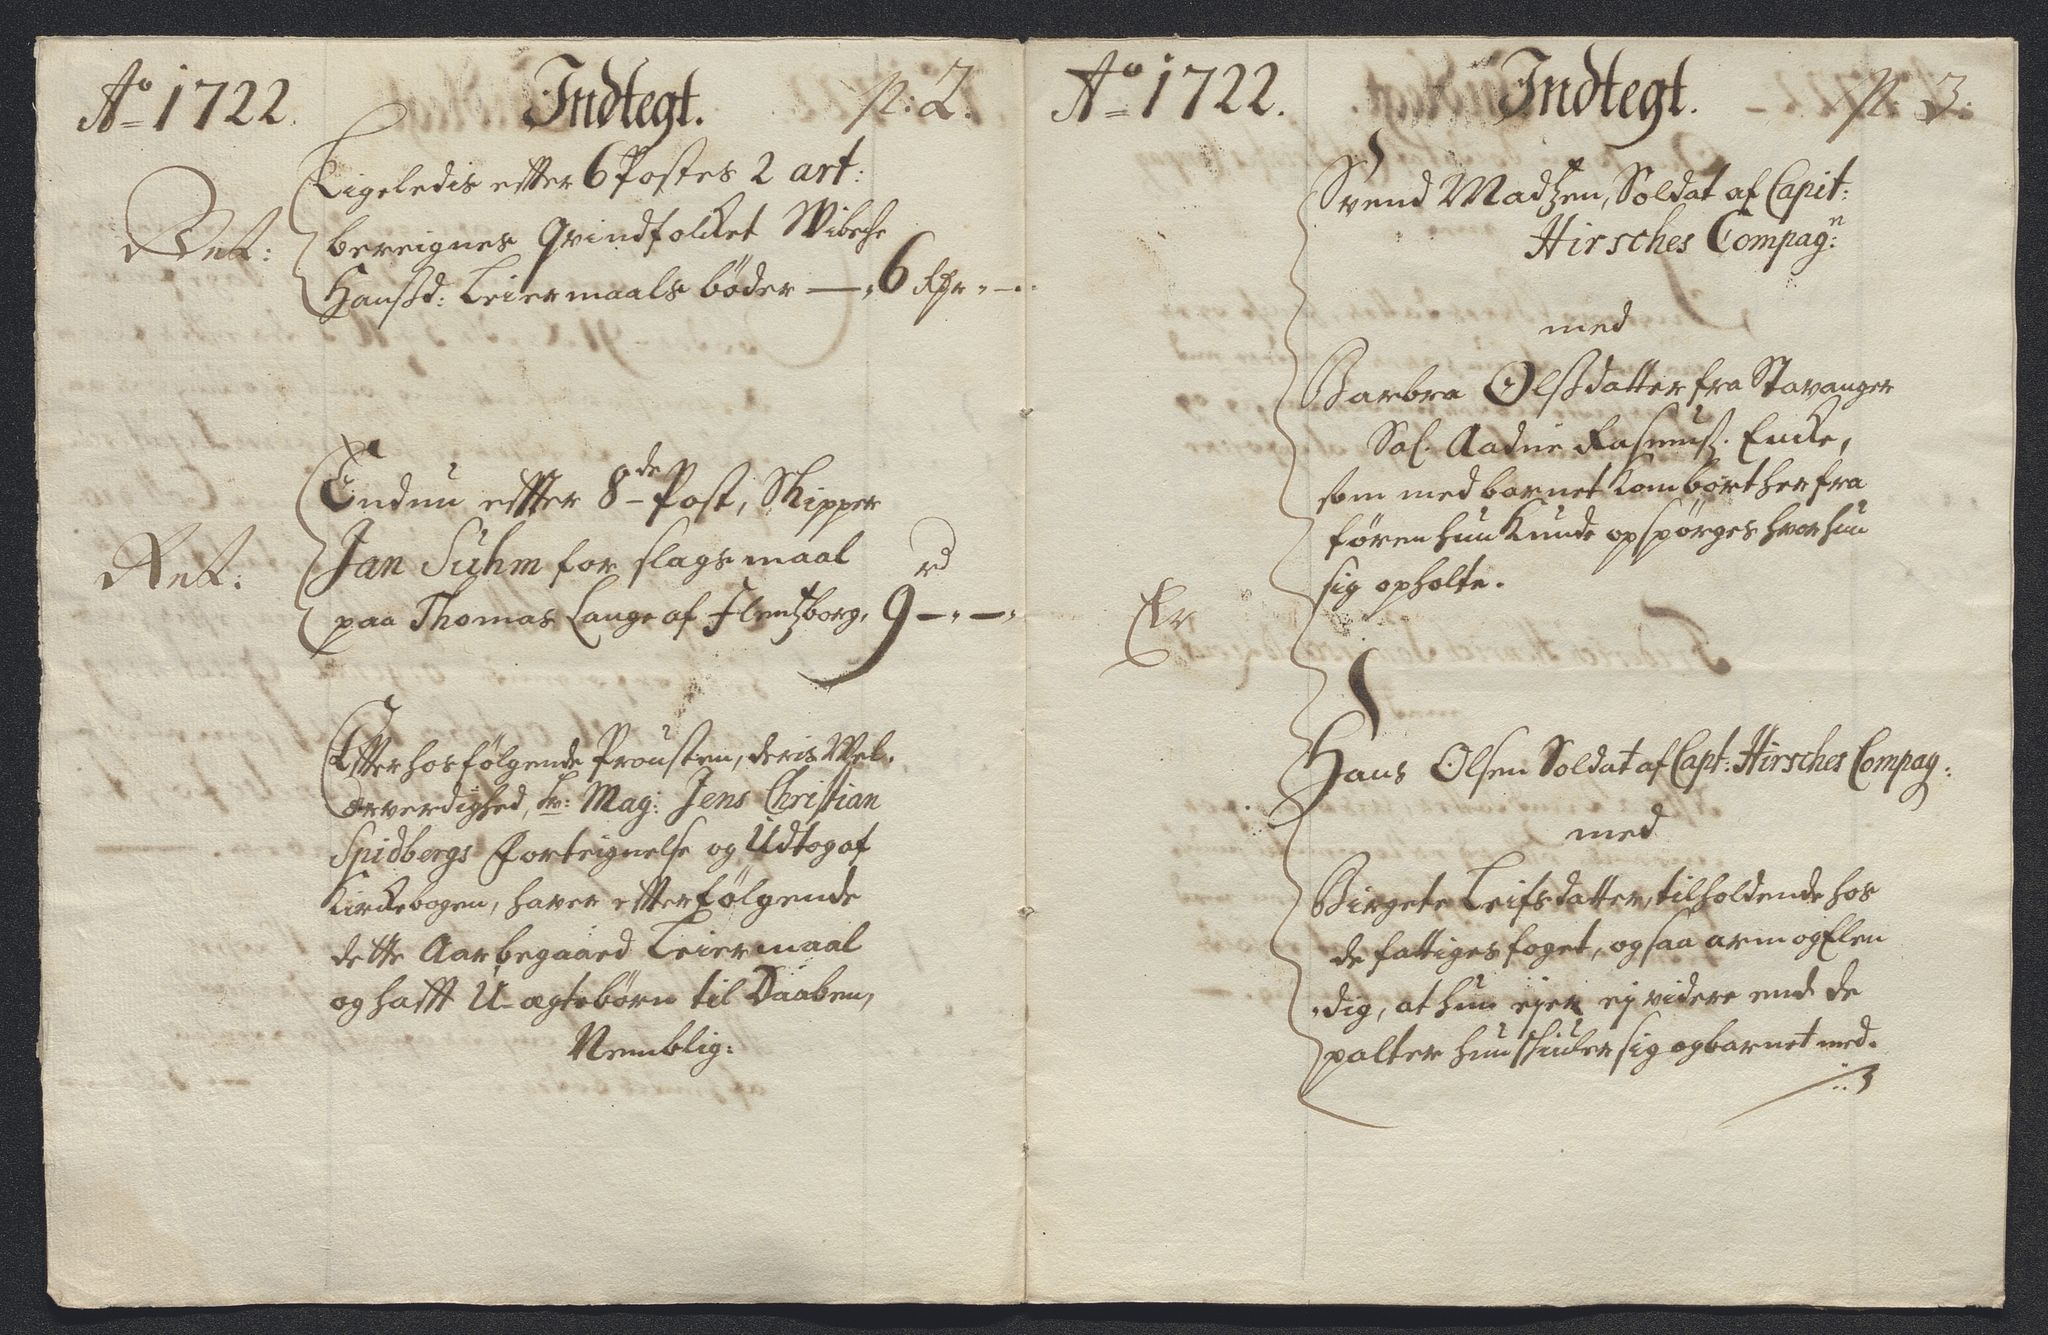 Aº 1722. Indtegt. p: 2.
Ligeledis efter 6 Postes 2 art:
bereignes Qvindfolcket Wibeche
Hansd: Leiermaals bøder — 6 Rdr
Endnu effter 8de Post, Skipper
Jan Suhm for slagsmaal
paa Thomas Lange af Flentzborg, 9 rd
Efter hosfølgende Prousten, deris Wel-
ærverdighed, Hr: Mag: Jens Christian
Spidbergs Forteignelse og Udtog af
Kirckebogen, haver efterfølgende
dette Aar begaaed Leiermaal
og hafft U-ægte børn til Daaben,
Nemblig:
Aº 1722. Indtegt. p. 3.
Svend Madtzen, Soldat af Capit:
Hirsches Compagn:
med
Barbra Olsdatter fra Stavanger
Sal. Aadne Rasmuss. Encke,
som med barnet kom bort herfra
føren hun kunde opspørges hvor hun
sig opholte.
Hans Olsen Soldat af Capt: Hirsches Compag:
med
Birgete Leifsdatter, tilholdende hos
de fattiges foget, og saa arm og Elen
dig, at hun ejer ej videre end de
palter hun skiuler sig og barnet med.